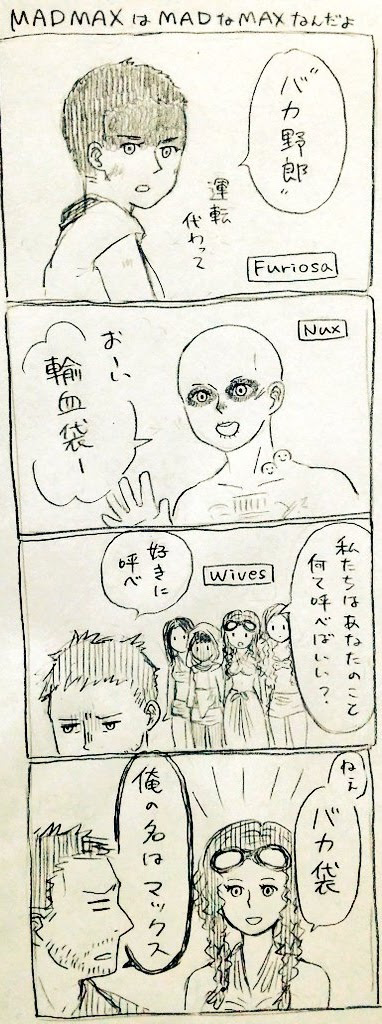 MADMAXはMADなMAXなんだよ
"バカ野郎"
運転
代わって
Furiosa
Nux
おーい
輸血袋ー
私たちはあなたのこと
何て呼べばいい?
Wives
好きに
呼べ
ねぇ
バカ袋
俺の名はマックス